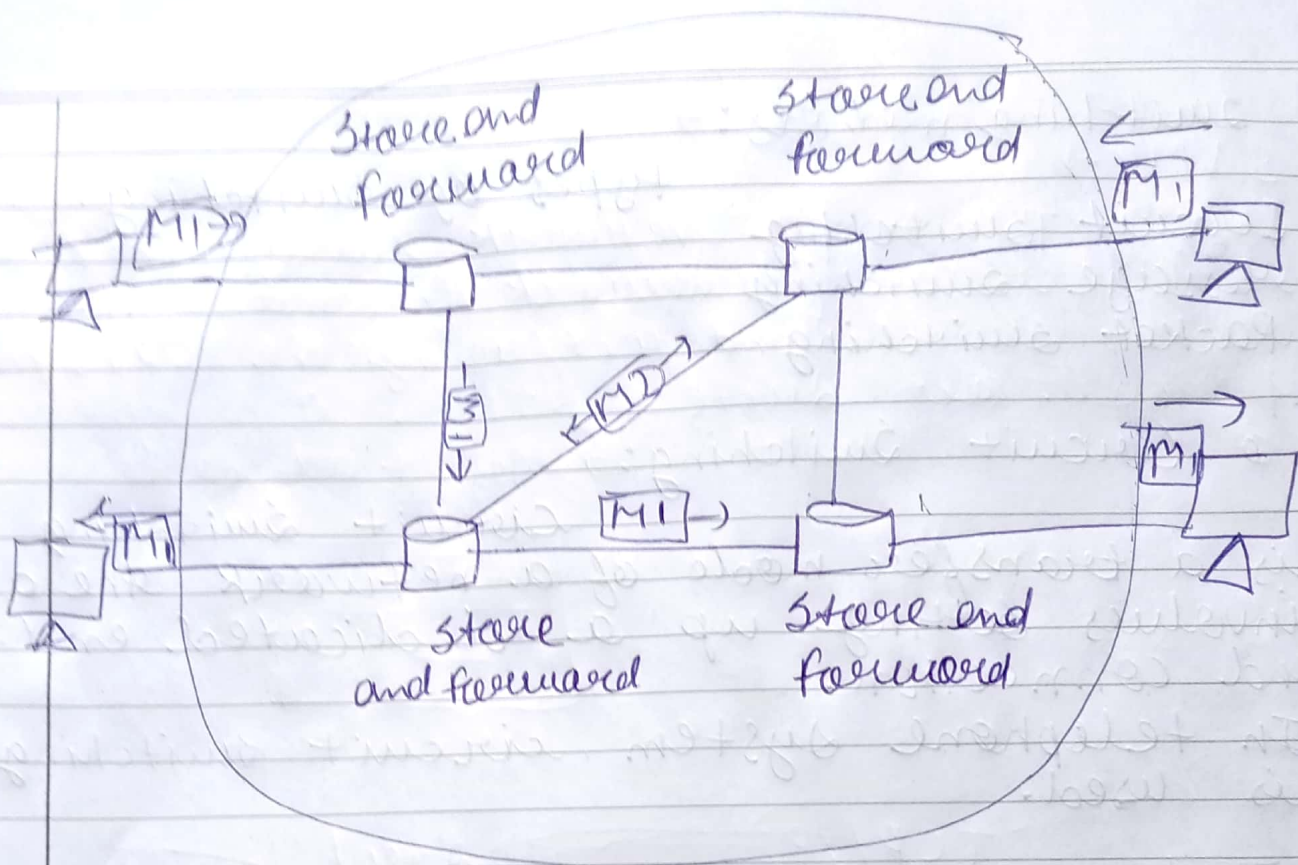 Store and
forward
Store and
forward
M1
M1
M2
M1
M1
M1
M1
Store
and forward
Store and
forward